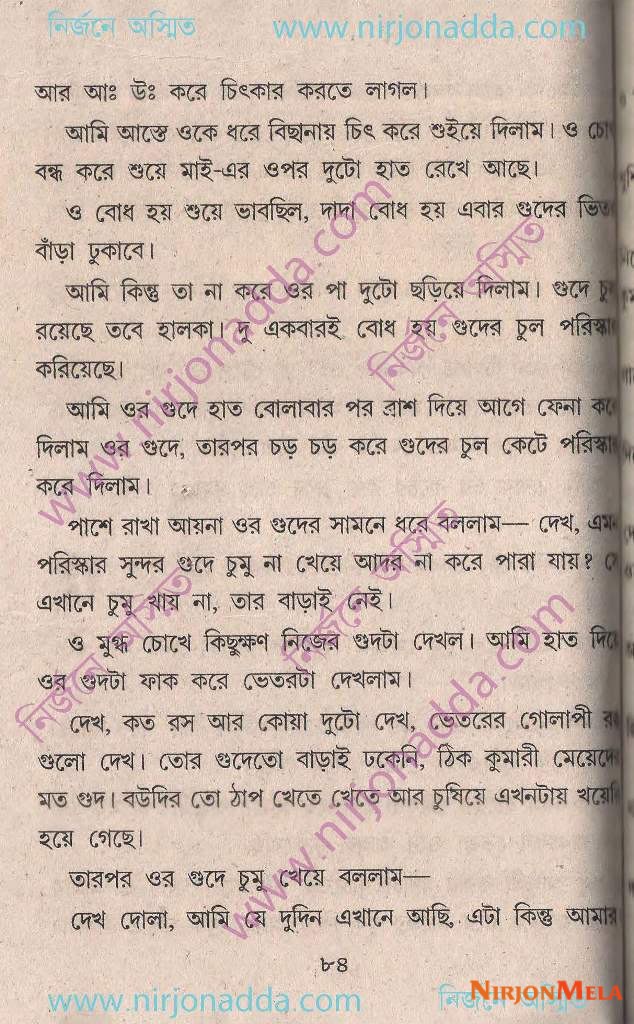 নির্জনে অস্মিত www.nirjonadda.com
আর আঃ উঃ করে চিৎকার করতে লাগল।
আমি আস্তে ওকে ধরে বিছানায় চিৎ করে শুইয়ে দিলাম। ও
বন্ধ করে শুয়ে মাই-এর ওপর দুটো হাত রেখে আছে।
ও বোধ হয় শুয়ে ভাবছিল, দাদা বোধ হয় এবার গুদের
বাঁড়া ঢুকাবে।
আমি কিন্তু তা না করে ওর পা দুটো ছড়িয়ে দিলাম। গুদে
রয়েছে তবে হালকা। দু একবারই বোধ হয় গুদের চুল
করিয়েছে।
আমি ওর গুদে হাত বোলাবার পর ব্রাশ দিয়ে আগে ফেনা
দিলাম ওর গুদে, তারপর চড় চড় করে গুদের চুল কেটে
করে দিলাম।
পাশে রাখা আয়না ওর গুদের সামনে ধরে বললাম— দেখ,
পরিস্কার সুন্দর গুদে চুমু না খেয়ে আদর না করে পারা যায়?
এখানে চুমু খায় না, তার বাড়াই নেই।
ও মুগ্ধ চোখে কিছুক্ষণ নিজের গুদটা দেখল। আমি হাত
ওর গুদটা ফাক করে ভেতরটা দেখলাম।
দেখ, কত রস আর কোয়া দুটো দেখ, ভেতরের গোলাপী
গুলো দেখ। তোর গুদেতো বাড়াই ঢকেনি, ঠিক কুমারী
মত গুদ। বউদির তো ঠাপ খেতে খেতে আর চুষিয়ে এখনটায়
হয়ে গেছে।
তারপর ওর গুদে চুমু খেয়ে বললাম—
দেখ দোলা, আমি যে দুদিন এখানে আছি, এটা কিন্তু
৮৪
www.nirjonadda.com নির্জনে অস্মিত
NIRJONMELA
www.nirjonadda.com
নির্জনে অস্মিত
নির্জনে অস্মিত
নির্জনে অস্মিত
www.nirjonadda.com